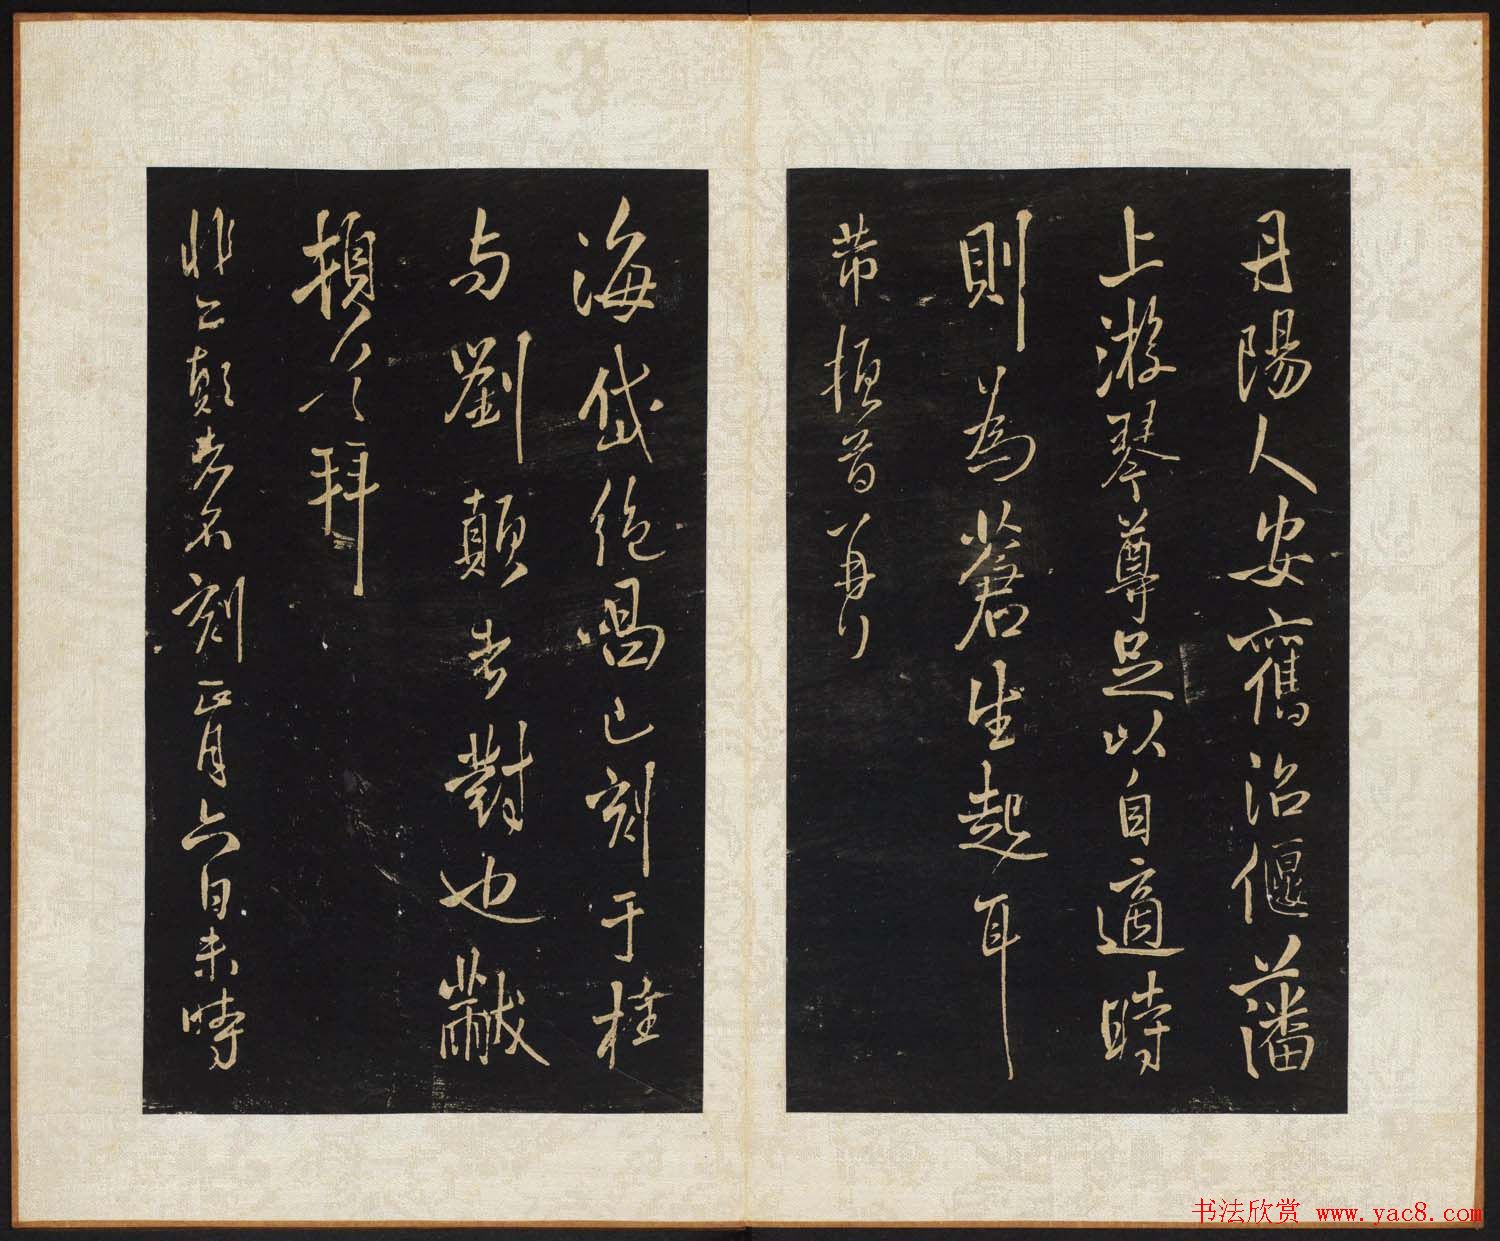 丹陽人安舊治偃藩
上游琴尊足以自適時
則為蒼生起耳
芾頓首再行
海岱絕唱已刻于桂
与劉顛老對也黻
頓首拜
非公顛老不刻正月六日未時
书法欣赏 www.yac8.com